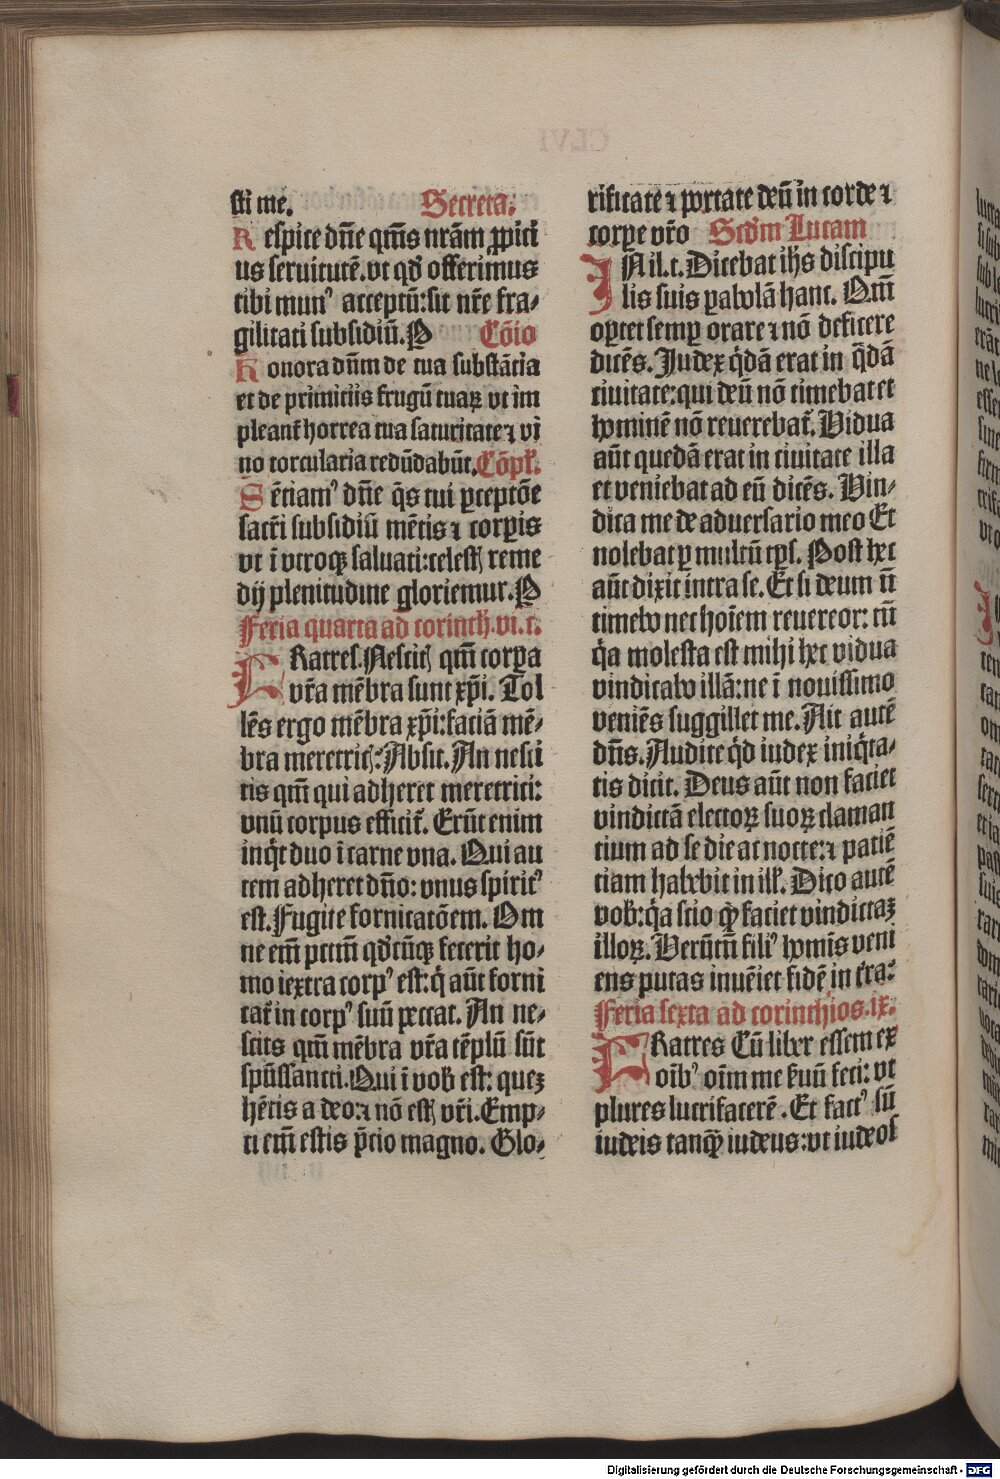 sti me. Secreta.
Respice dñe qm̃s nrãm ꝓpici
us seruitutẽ. vt qđ offerimus
tibi munꝰ acceptũ: sit nr̃e fra-
gilitati subsidiũ. P Cõio
Honora dñm de tua substãtia
et de primitiis frugũ tuaꝝ vt im
pleant̃ horrea tua saturitate ⁊ vi
no torcularia redũdabũt. Cõpł.
Sẽtiamꝰ dñe q̃s tui ꝑceptõe
sacr̃i subsidiũ mẽtis ⁊ corpis
vt ĩ vtroqꝫ saluati: celestꝭ reme
dij plenitudine gloriemur. P
Feria quarta ad corinth̃. vi. c.
FRatres. Nescitꝭ qm̃ corpa
vr̃a mẽbra sunt xp̃i. Tol
lẽs ergo mẽbra xp̃i: faciã mẽ-
bra meretricꝭ? Absit. An nesci
tis qm̃ qui adheret meretrici:
vnũ corpus efficit̃. Erũt enim
inq̃t duo ĩ carne vna. Qui au
tem adheret dño: vnus spiritꝰ
est. Fugite fornicatõem. Om
ne em̃ pctm̃ qđcũqꝫ fecerit ho-
mo iextra corpꝰ est: q̃ aũt forni
cat̃ in corpꝰ suũ peccat. An ne-
scitis qm̃ mẽbra vr̃a tẽplũ sũt
spũssancti. Qui ĩ vob̃ est: queꝫ
hẽtis a deo: ⁊ nõ estꝭ vr̃i. Emp-
ti em̃ estis p̃cio magno. Glo-
rificate ⁊ portate deũ in corde ⁊
corpe vr̃o Scđm Lucam
IN il. t. Dicebat ih̃s discipu
lis suis pabolã hanc. Qm̃
oꝑtet semꝑ orare ⁊ nõ deficere
dicẽs. Judex q̃dã erat in q̃dã
ciuitate: qui deũ nõ timebat et
hominẽ nõ reuerebat̃. Vidua
aũt quedã erat in ciuitate illa
et veniebat ad eũ dicẽs. Vin-
dica me de aduersario meo Et
nolebat ꝑ multũ tp̃s. Post hec
aũt dixit intra se. Et si deum ñ
timeo nec hoĩem reuereor: tñ
q̃a molesta est mihi hec vidua
vindicabo illã: ne ĩ nouissimo
veniẽs suggillet me. Ait autẽ
dñs. Audite q̃d iudex iniq̃ta-
tis dicit. Deus aũt non faciet
vindictã electoꝝ suoꝝ claman
tium ad se die ac nocte: ⁊ patiẽ
tiam habebit in ill̃. Dico autẽ
vob̃: q̃a scio ꝙ faciet vindictaꝫ
illoꝝ. Verũtñ filiꝰ homĩs veni
ens putas inuẽiet fidẽ in t̃ra?
Feria sexta ad corinthios. ix.
FRatres Cũ liber essem ex
oĩbꝰ oĩm me ẜuũ feci: vt
plures lucrifacerẽ. Et factꝰ sũ
iudeis tanqꝫ iudeus: vt iudeos
Digitalisierung gefördert durch die Deutsche Forschungsgemeinschaft - DFG